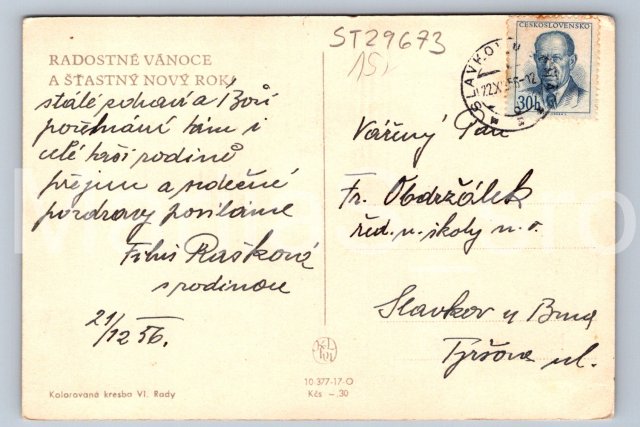 RADOSTNÉ VÁNOCE
A ŠŤASTNÝ NOVÝ ROK
stálé zdraví a Boží
požehnání Vám i
celé Vaší rodině
přejeme a srdečné
pozdravy posíláme
Rašková
s rodinou
21/12 56.
Kolorovaná kresba Vl. Rady
10 377-17-O
Kčs - 30
ST29673
15,-
ČESKOSLOVENSKO
30h
SLAVKOV U BRNA
Vážený Pan
Fr. Obdržálek
řed. n. školy v. v.
Slavkov u Brna
Tyršova ul.